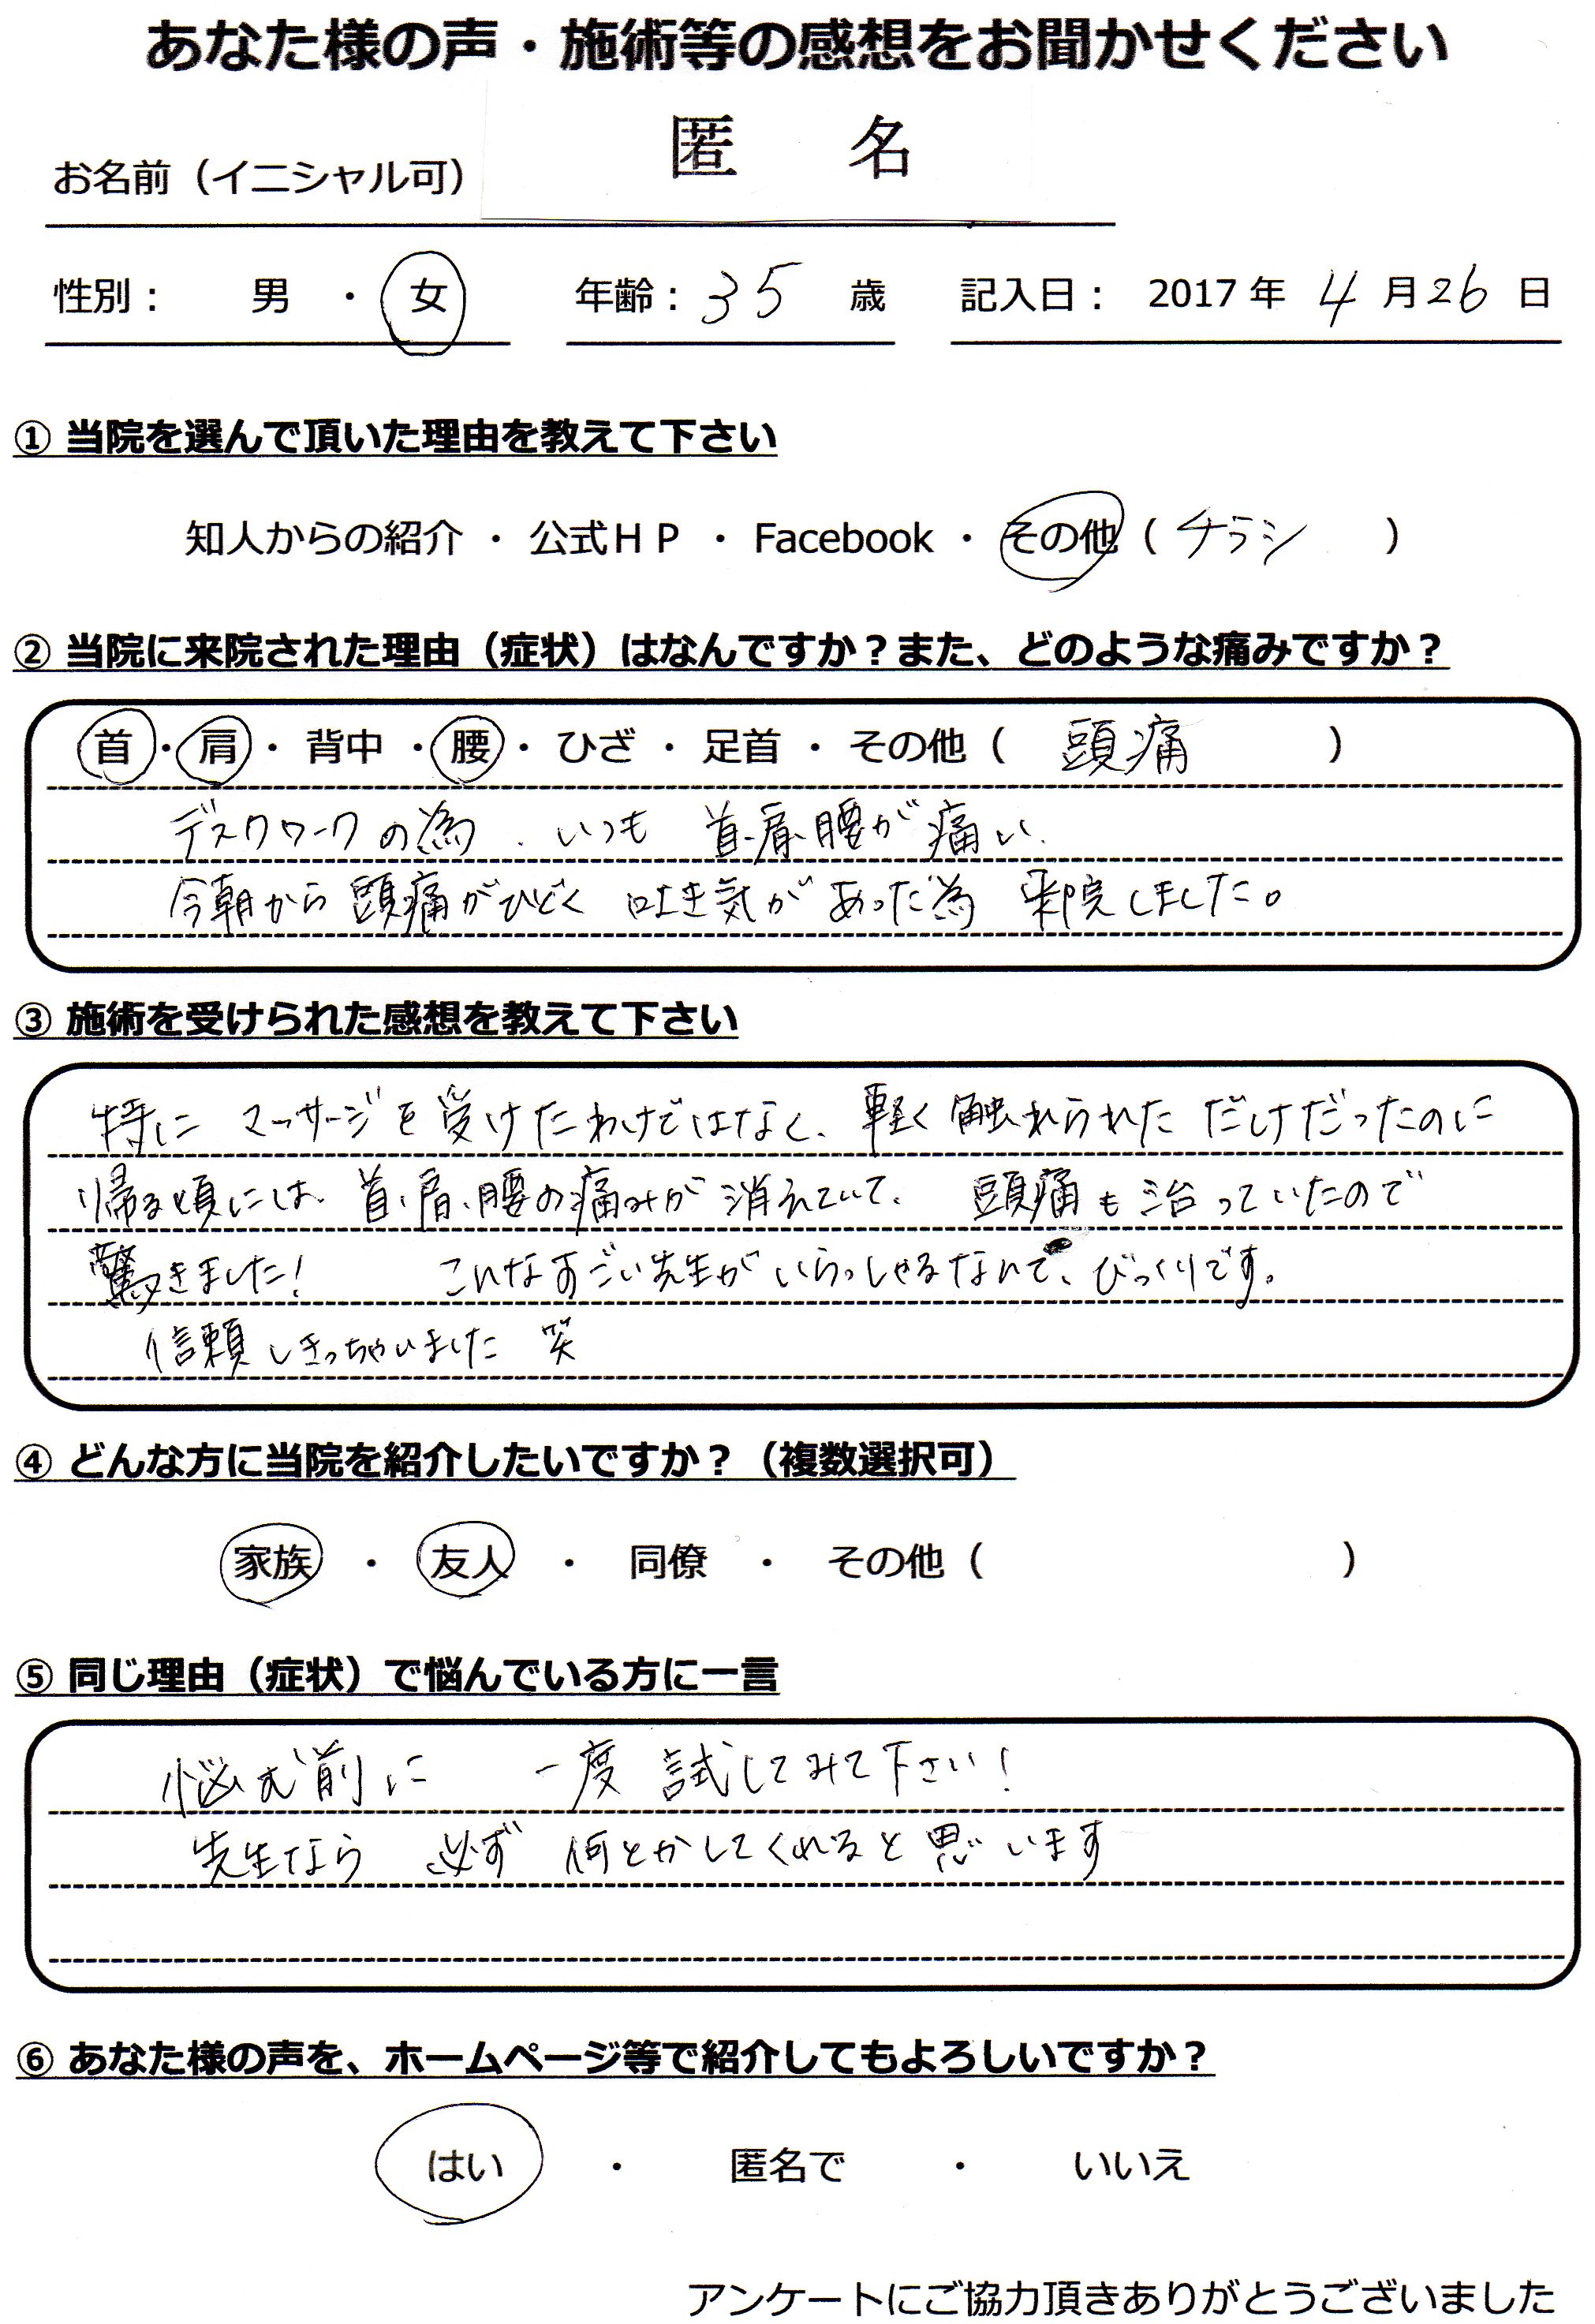 あなた様の声・施術等の感想をお聞かせください
匿 名
お名前（イニシャル可）
性別： 男 ・ 女 年齢：35 歳 記入日： 2017 年 4 月 26 日
① 当院を選んで頂いた理由を教えて下さい
知人からの紹介 ・ 公式ＨＰ ・ Facebook ・ その他（ チラシ ）
② 当院に来院された理由（症状）はなんですか？また、どのような痛みですか？
首 ・ 肩 ・ 背中 ・ 腰 ・ ひざ ・ 足首 ・ その他（ 頭痛 ）
デスクワークの為、いつも 首、肩、腰が痛い、
今朝から頭痛がひどく 吐き気があった為 来院しました。
③ 施術を受けられた感想を教えて下さい
特に マッサージを受けたわけではなく、軽く触れられただけだったのに
帰る頃には、首、肩、腰の痛みが消えていて、 頭痛も治っていたので
驚きました! こんなすごい先生がいらっしゃるなんて、びっくりです。
信頼しきっちゃいました 笑
④ どんな方に当院を紹介したいですか？（複数選択可）
家族 ・ 友人 ・ 同僚 ・ その他（ ）
⑤ 同じ理由（症状）で悩んでいる方に一言
悩む前に 一度 試してみて下さい!
先生なら 必ず 何とかしてくれると思います
⑥ あなた様の声を、ホームページ等で紹介してもよろしいですか？
はい ・ 匿名で ・ いいえ
アンケートにご協力頂きありがとうございました